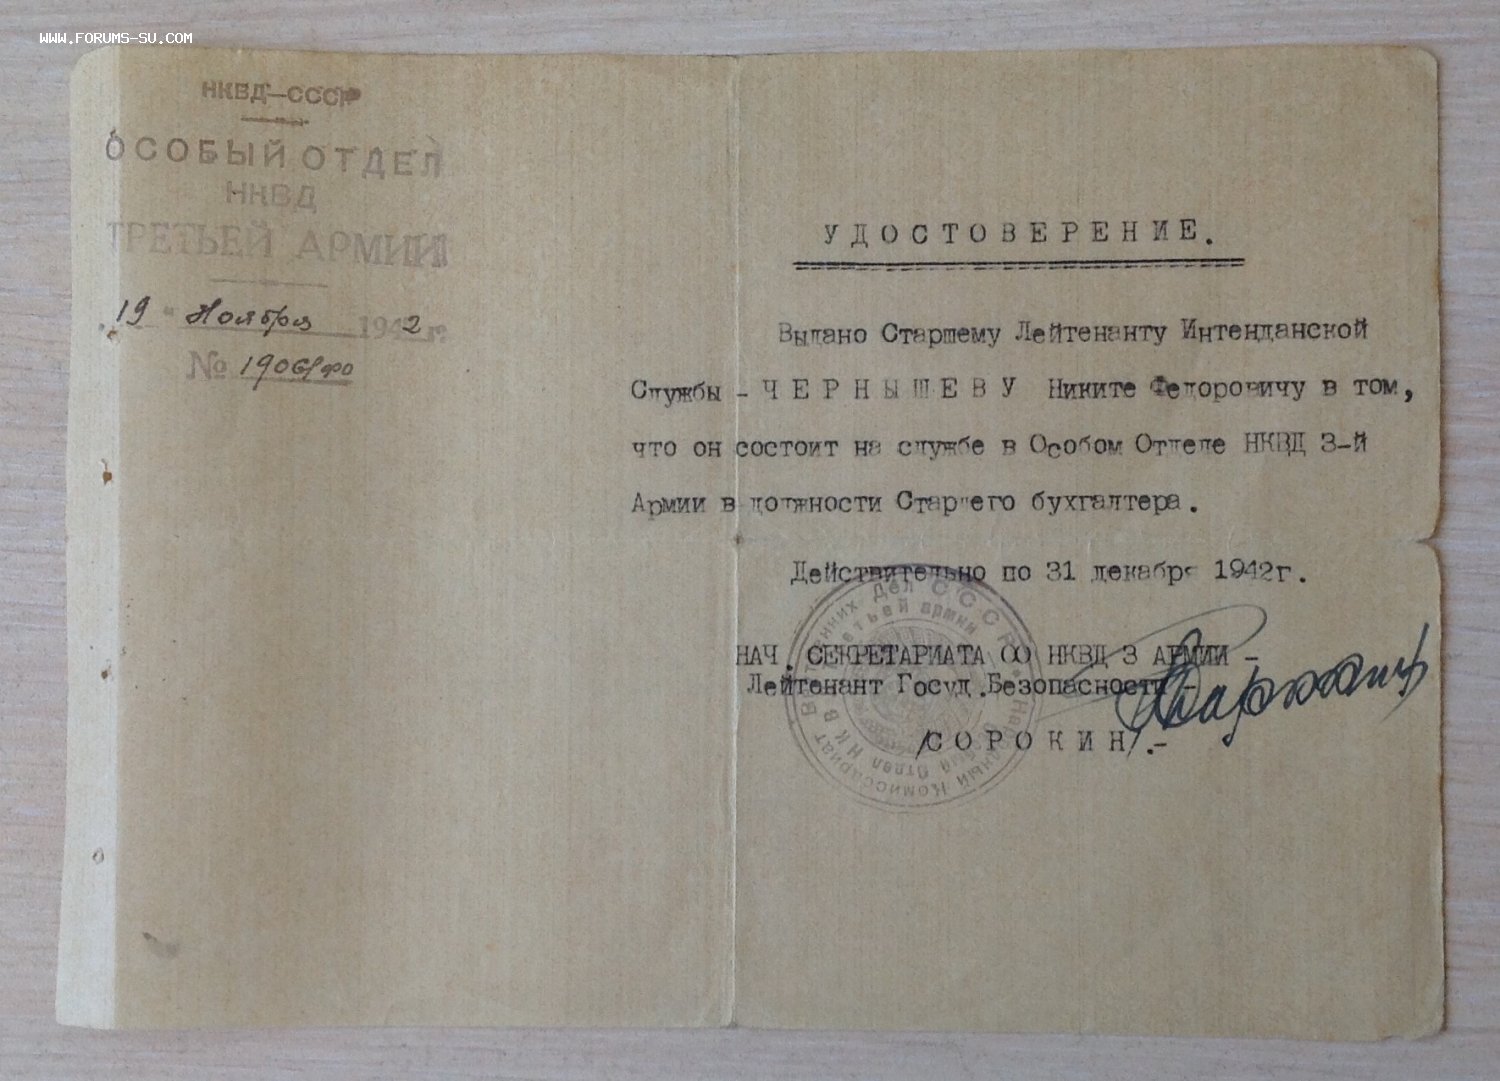 WWW.FORUMS-SU.COM
НКВД—СССР
ОСОБЫЙ ОТДЕЛ
НКВД
ТРЕТЬЕЙ АРМИИ
19 " Ноября 1942 г.
№ 1906/фо
УДОСТОВЕРЕНИЕ.
Выдано Старшему Лейтенанту Интенданской
Службы - ЧЕРНЫШЕВУ Никите Федоровичу в том,
что он состоит на службе в Особом Отделе НКВД 3-й
Армии в должности Старшего бухгалтера.
Действительно по 31 декабря 1942г.
НАЧ. СЕКРЕТАРИАТА ОО НКВД 3 АРМИИ -
Лейтенант Госуд.Безопасности -
/СОРОКИН/.-
Народный Комиссариат Внутренних Дел СССР
Особый Отдел НКВД Третьей армии